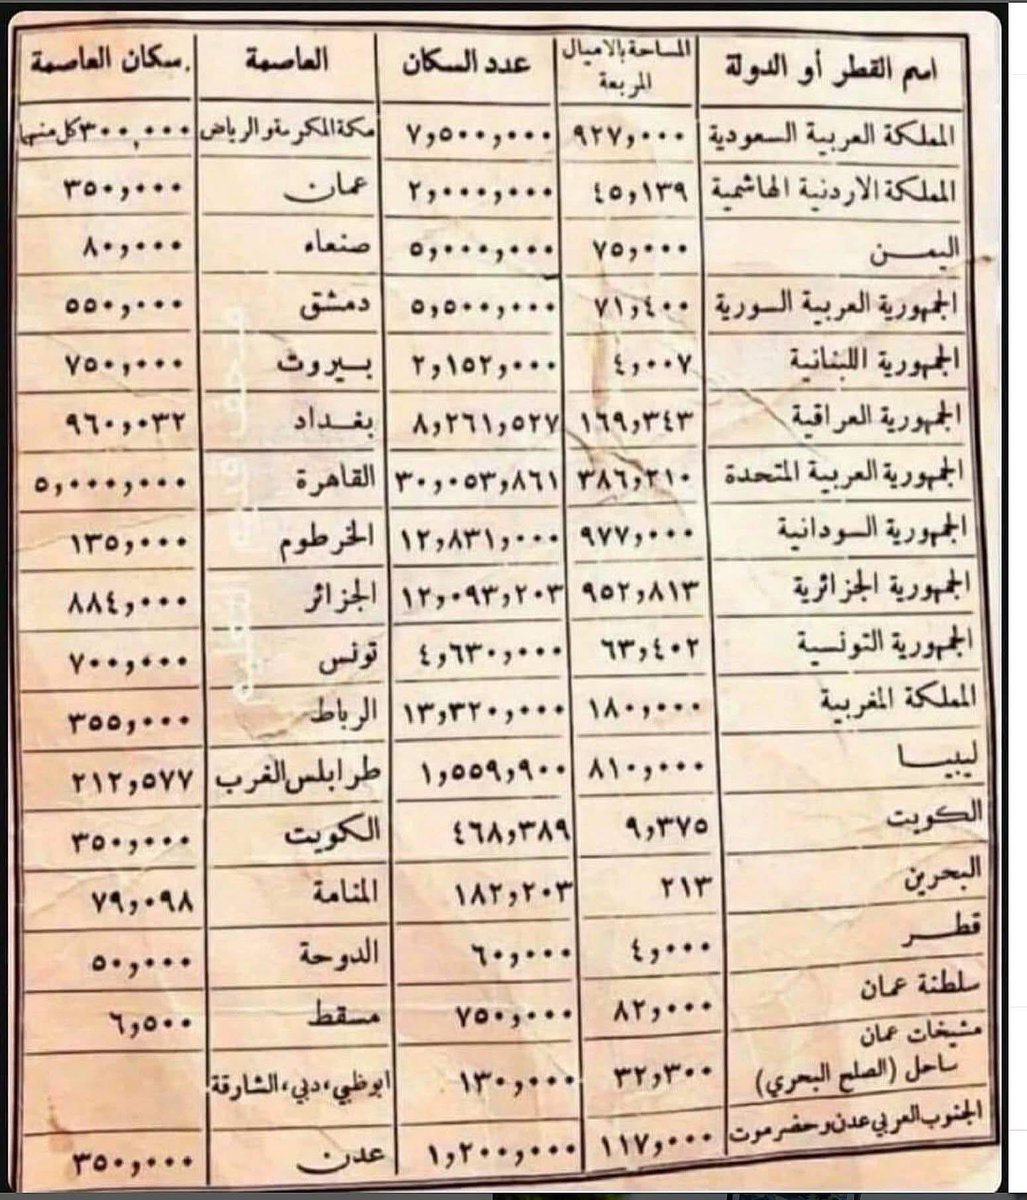 اسم القطر أو الدولة المساحة بالاميال المربعة عدد السكان العاصمة سكان العاصمة
المملكة العربية السعودية ٩٢٧,٠٠٠ ٧,٥٠٠,٠٠٠ مكة المكرمة والرياض ٣٠٠,٠٠٠ كل منها
المملكة الاردنية الهاشمية ٤٥,١٣٩ ٢,٠٠٠,٠٠٠ عمان ٣٥٠,٠٠٠
اليمن ٧٥,٠٠٠ ٥,٠٠٠,٠٠٠ صنعاء ٨٠,٠٠٠
الجمهورية العربية السورية ٧١,٤٠٠ ٥,٥٠٠,٠٠٠ دمشق ٥٥٠,٠٠٠
الجمهورية اللبنانية ٤,٠٠٧ ٢,١٥٢,٠٠٠ بيروت ٧٥٠,٠٠٠
الجمهورية العراقية ١٦٩,٣٤٣ ٨,٢٦١,٥٢٧ بغداد ٩٦٠,٠٣٢
الجمهورية العربية المتحدة ٣٨٦,٢١٠ ٣٠,٠٥٣,٨٦١ القاهرة ٥,٠٠٠,٠٠٠
الجمهورية السودانية ٩٧٧,٠٠٠ ١٢,٨٣١,٠٠٠ الخرطوم ١٣٥,٠٠٠
الجمهورية الجزائرية ٩٥٢,٨١٣ ١٢,٠٩٣,٢٠٣ الجزائر ٨٨٤,٠٠٠
الجمهورية التونسية ٦٣,٤٠٢ ٤,٦٣٠,٠٠٠ تونس ٧٠٠,٠٠٠
المملكة المغربية ١٨٠,٠٠٠ ١٣,٣٢٠,٠٠٠ الرباط ٣٥٥,٠٠٠
ليبيا ٨١٠,٠٠٠ ١,٥٥٩,٩٠٠ طرابلس الغرب ٢١٢,٥٧٧
الكويت ٩,٣٧٥ ٤٦٨,٣٨٩ الكويت ٣٥٠,٠٠٠
البحرين ٢١٣ ١٨٢,٢٠٣ المنامة ٧٩,٠٩٨
قطر ٤,٠٠٠ ٦٠,٠٠٠ الدوحة ٥٠,٠٠٠
سلطنة عمان ٨٢,٠٠٠ ٧٥٠,٠٠٠ مسقط ٦,٥٠٠
مشيخات عمان
ساحل (الصلح البحري) ٣٢,٣٠٠ ١٣٠,٠٠٠ ابوظبي، دبي، الشارقة
الجنوب العربي عدن وحضرموت ١١٧,٠٠٠ ١,٢٠٠,٠٠٠ عدن ٣٥٠,٠٠٠